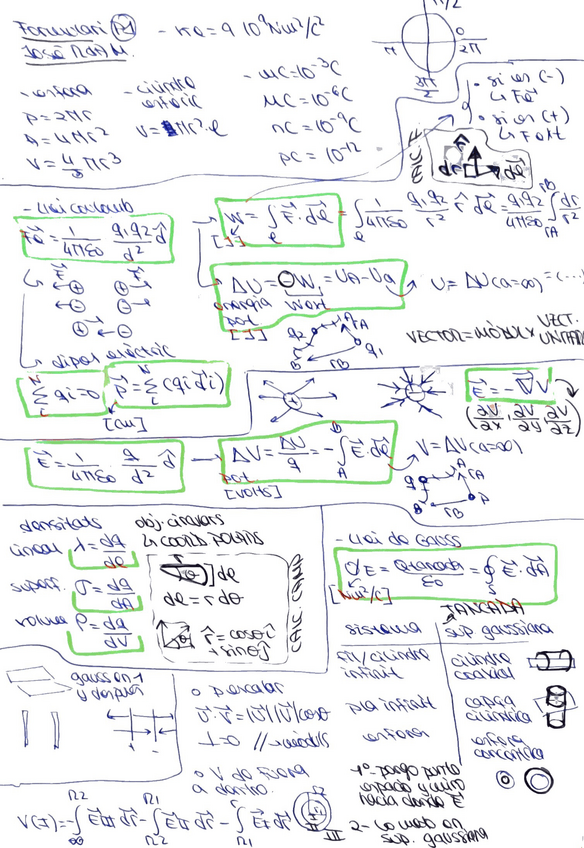 Formulari P1
José Ram M.
- Ke = 9·10⁹ Nm²/c²
π/2
π
0
2π
3π/2
- esfera
P = 2πr
A = 4πr²
V = 4/3 πr³
- cilindre
esfèric
V = πr²·l
- mC = 10⁻³C
μC = 10⁻⁶C
nC = 10⁻⁹C
pC = 10⁻¹²
· si es (-)
↳ Fe
· si es (+)
↳ Fext
CALC. F
- Llei coulomb
Fe = 1/4πε₀ q₁q₂/d² d̂
W = ∫ F·dl = ∫ 1/4πε₀ q₁q₂/r² r̂ dl = q₁q₂/4πε₀ ∫ dr/r²
[J]
ΔU = ⊖W = UA - UB
energia
pot
Wext
[J]
U = ΔU(a=∞) = (...
VECTOR = MÒDUL × VECT. UNITARI
↳ dipol elèctric
Σ qi = 0
p = Σ (qi di)
[cm]
E = -∇V
(∂V/∂x, ∂V/∂y, ∂V/∂z)
E = 1/4πε₀ q/d² d̂
ΔV = ΔU/q = -∫ E·dl
pot
[volts]
V = ΔV(a=∞)
densitats
lineal λ = dq/dl
superf. σ = dq/dA
volum ρ = dq/dV
obj. circulars
↳ coord polars
dl = r dθ
r̂ = cosθi
+ sinθj
CALC. CAMP
- Llei de Gauss
ΦE = Qtancada/ε₀ = ∮ E·dA
[Nm²/c]
TANCADA
sistema
sup gaussiana
fil/cilindre
infinit
cilindre
coaxial
pla infinit
capsa
cilíndrica
esfera
esfera
concèntrica
gauss en 1
y después
o p. escalar
u·v = |u||v|cosθ
⊥=0 // = mòduls
o V de fuera
a dentro.
1º- pongo punto
espacio y miro
hacia donde E
2- Lo meto en
sup. gaussiana
V(I) = -∫ EIII dr - ∫ EII dr - ∫ EI dr
II
III